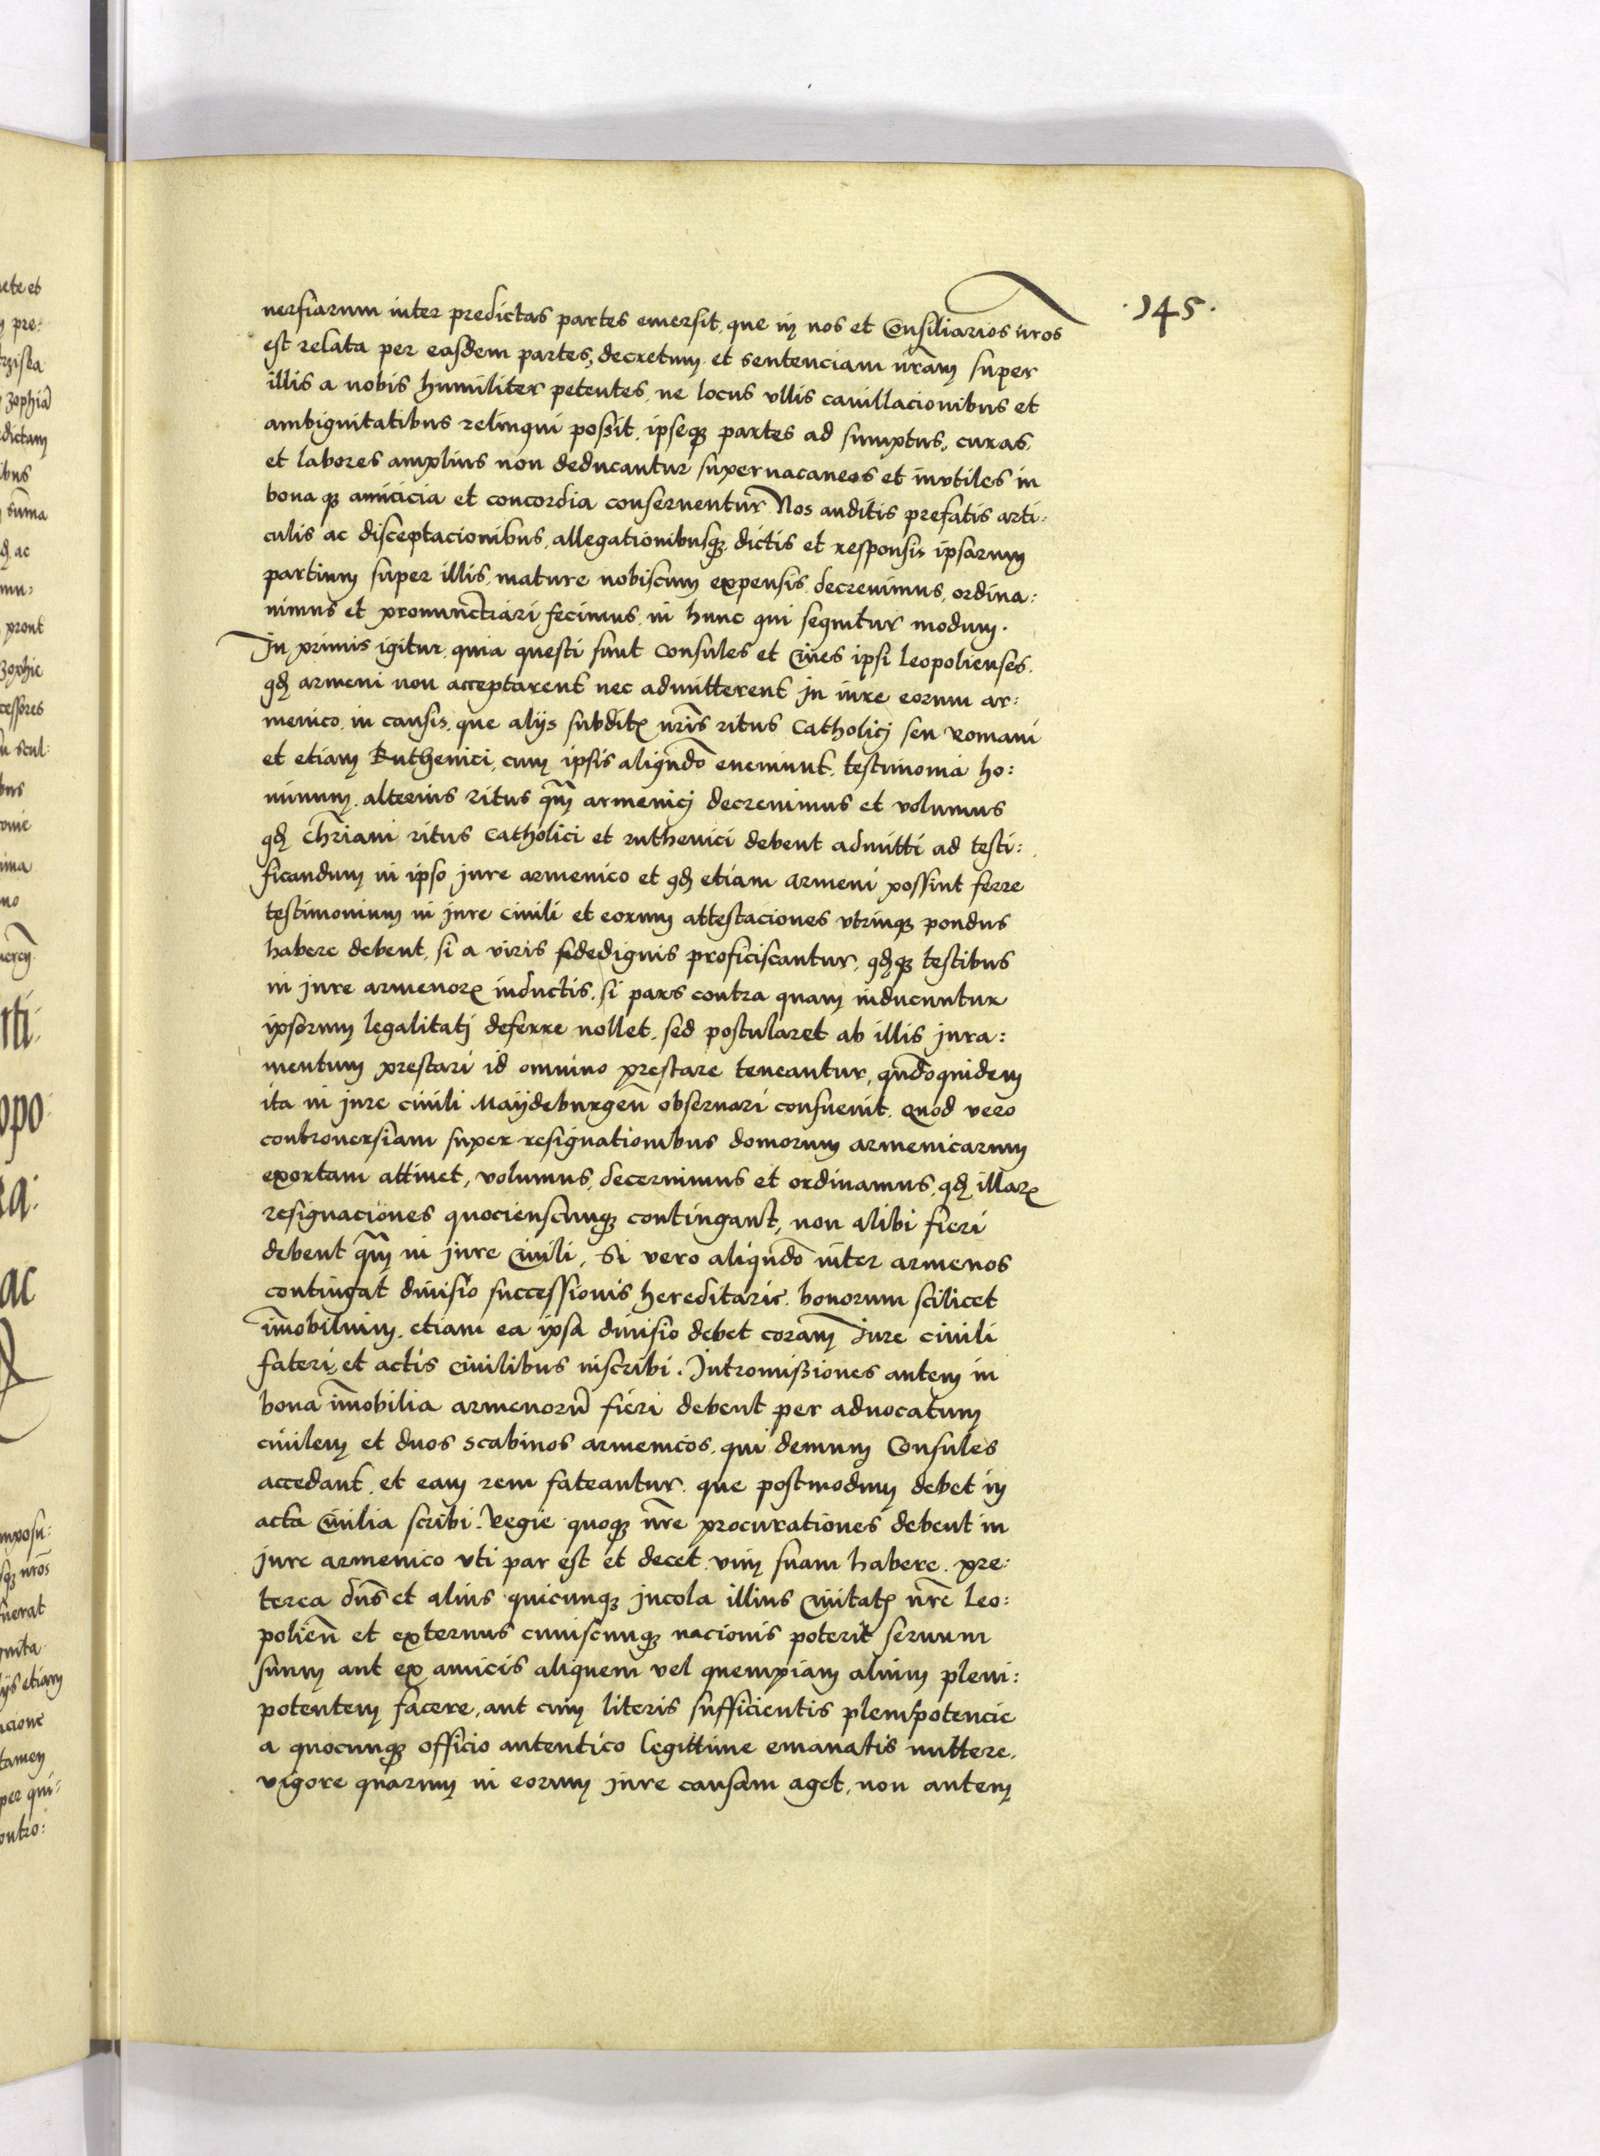 ·145·
uersiarum inter predictas partes emersit, que in nos et Consiliarios nr̄os
est relata per easdem partes, decretum et sentenciam nr̄am super
illis a nobis humiliter petentes, ne locus vllis cauillacionibus et
ambiguitatibus relinqui possit, ipseqꝫ partes ad sumptus, curas,
et labores amplius non deducantur superuacaneos et invtiles in
bona qꝫ amicicia et concordia conseruentur Nos auditis prefatis arti:
culis ac disceptacionibus, allegationibusqꝫ dictis et responsis ipsarum
partium super illis, mature nobiscum expensis decreuimus, ordina:
uimus et pronunctiari fecimus in hunc qui sequitur modum.
In primis igitur, quia questi sunt Consules et Ciues ipsi Leopolienses,
qđ armeni non acceptarent nec admitterent in iure eorum ar:
menico, in causis, que alijs subditꝭ nr̄is ritus Catholicj seu Romani
et etiam Ruthenici, cum ipsis aliqn̄do eueniunt, testimonia ho:
minum, alterius ritus qm̄ armenicj decreuimus et volumus
qđ chr̄iani ritus Catholici et ruthenici debent admitti ad testi:
ficandum in ipso jure armenico et qđ etiam Armeni possint ferre
testimonium in jure ciuili et eorum attestaciones vtrinqꝫ pondus
habere debent, si a viris fidedignis proficiscantur, qđqꝫ testibus
in jure armenorꝝ inductis, si pars contra quam inducuntur
ipsorum legalitatj deferre nollet, sed postularet ab illis jura:
mentum prestari id omnino prestare teneantur, qn̄doquidem
ita in jure ciuili Maydeburgen̄ obseruari consueuit. Quod vero
controuersiam super resignationibus domorum armenicarum
exortam attinet, volumus, decernimus et ordinamus, qđ illarꝝ
resignaciones quocienscunqꝫ contingant, non alibi fieri
debent qm̄ in jure Ciuili, Si vero aliqn̄do inter armenos
contingat diuisio successionis hereditarie bonorum scilicet
im̄obilium, etiam ea ipsa diuisio debet coram Jure ciuili
fateri, et actis Ciuilibus inscribi. Intromissiones autem in
bona im̄obilia armenorū fieri debent per aduocatum
ciuilem et duos scabinos armenicos, qui demum Consules
accedant, et eam rem fateantur, que postmodum debet in
acta Ciuilia scribi. Regie quoqꝫ nr̄e procurationes debent in
jure armenico vti par est et decet vim suam habere. Pre:
terea dn̄s et alius quicunqꝫ jncola illius Ciuitatꝭ nr̄e Leo:
polien̄ et externus cuiuscunqꝫ nacionis poterit seruum
suum aut ex amicis aliquem vel quempiam alium pleni:
potentem facere, aut cum literis sufficientis plenipotencie
a quocunqꝫ officio autentico legittime emanatis mittere,
vigore quarum in eorum jure causam aget, non autem